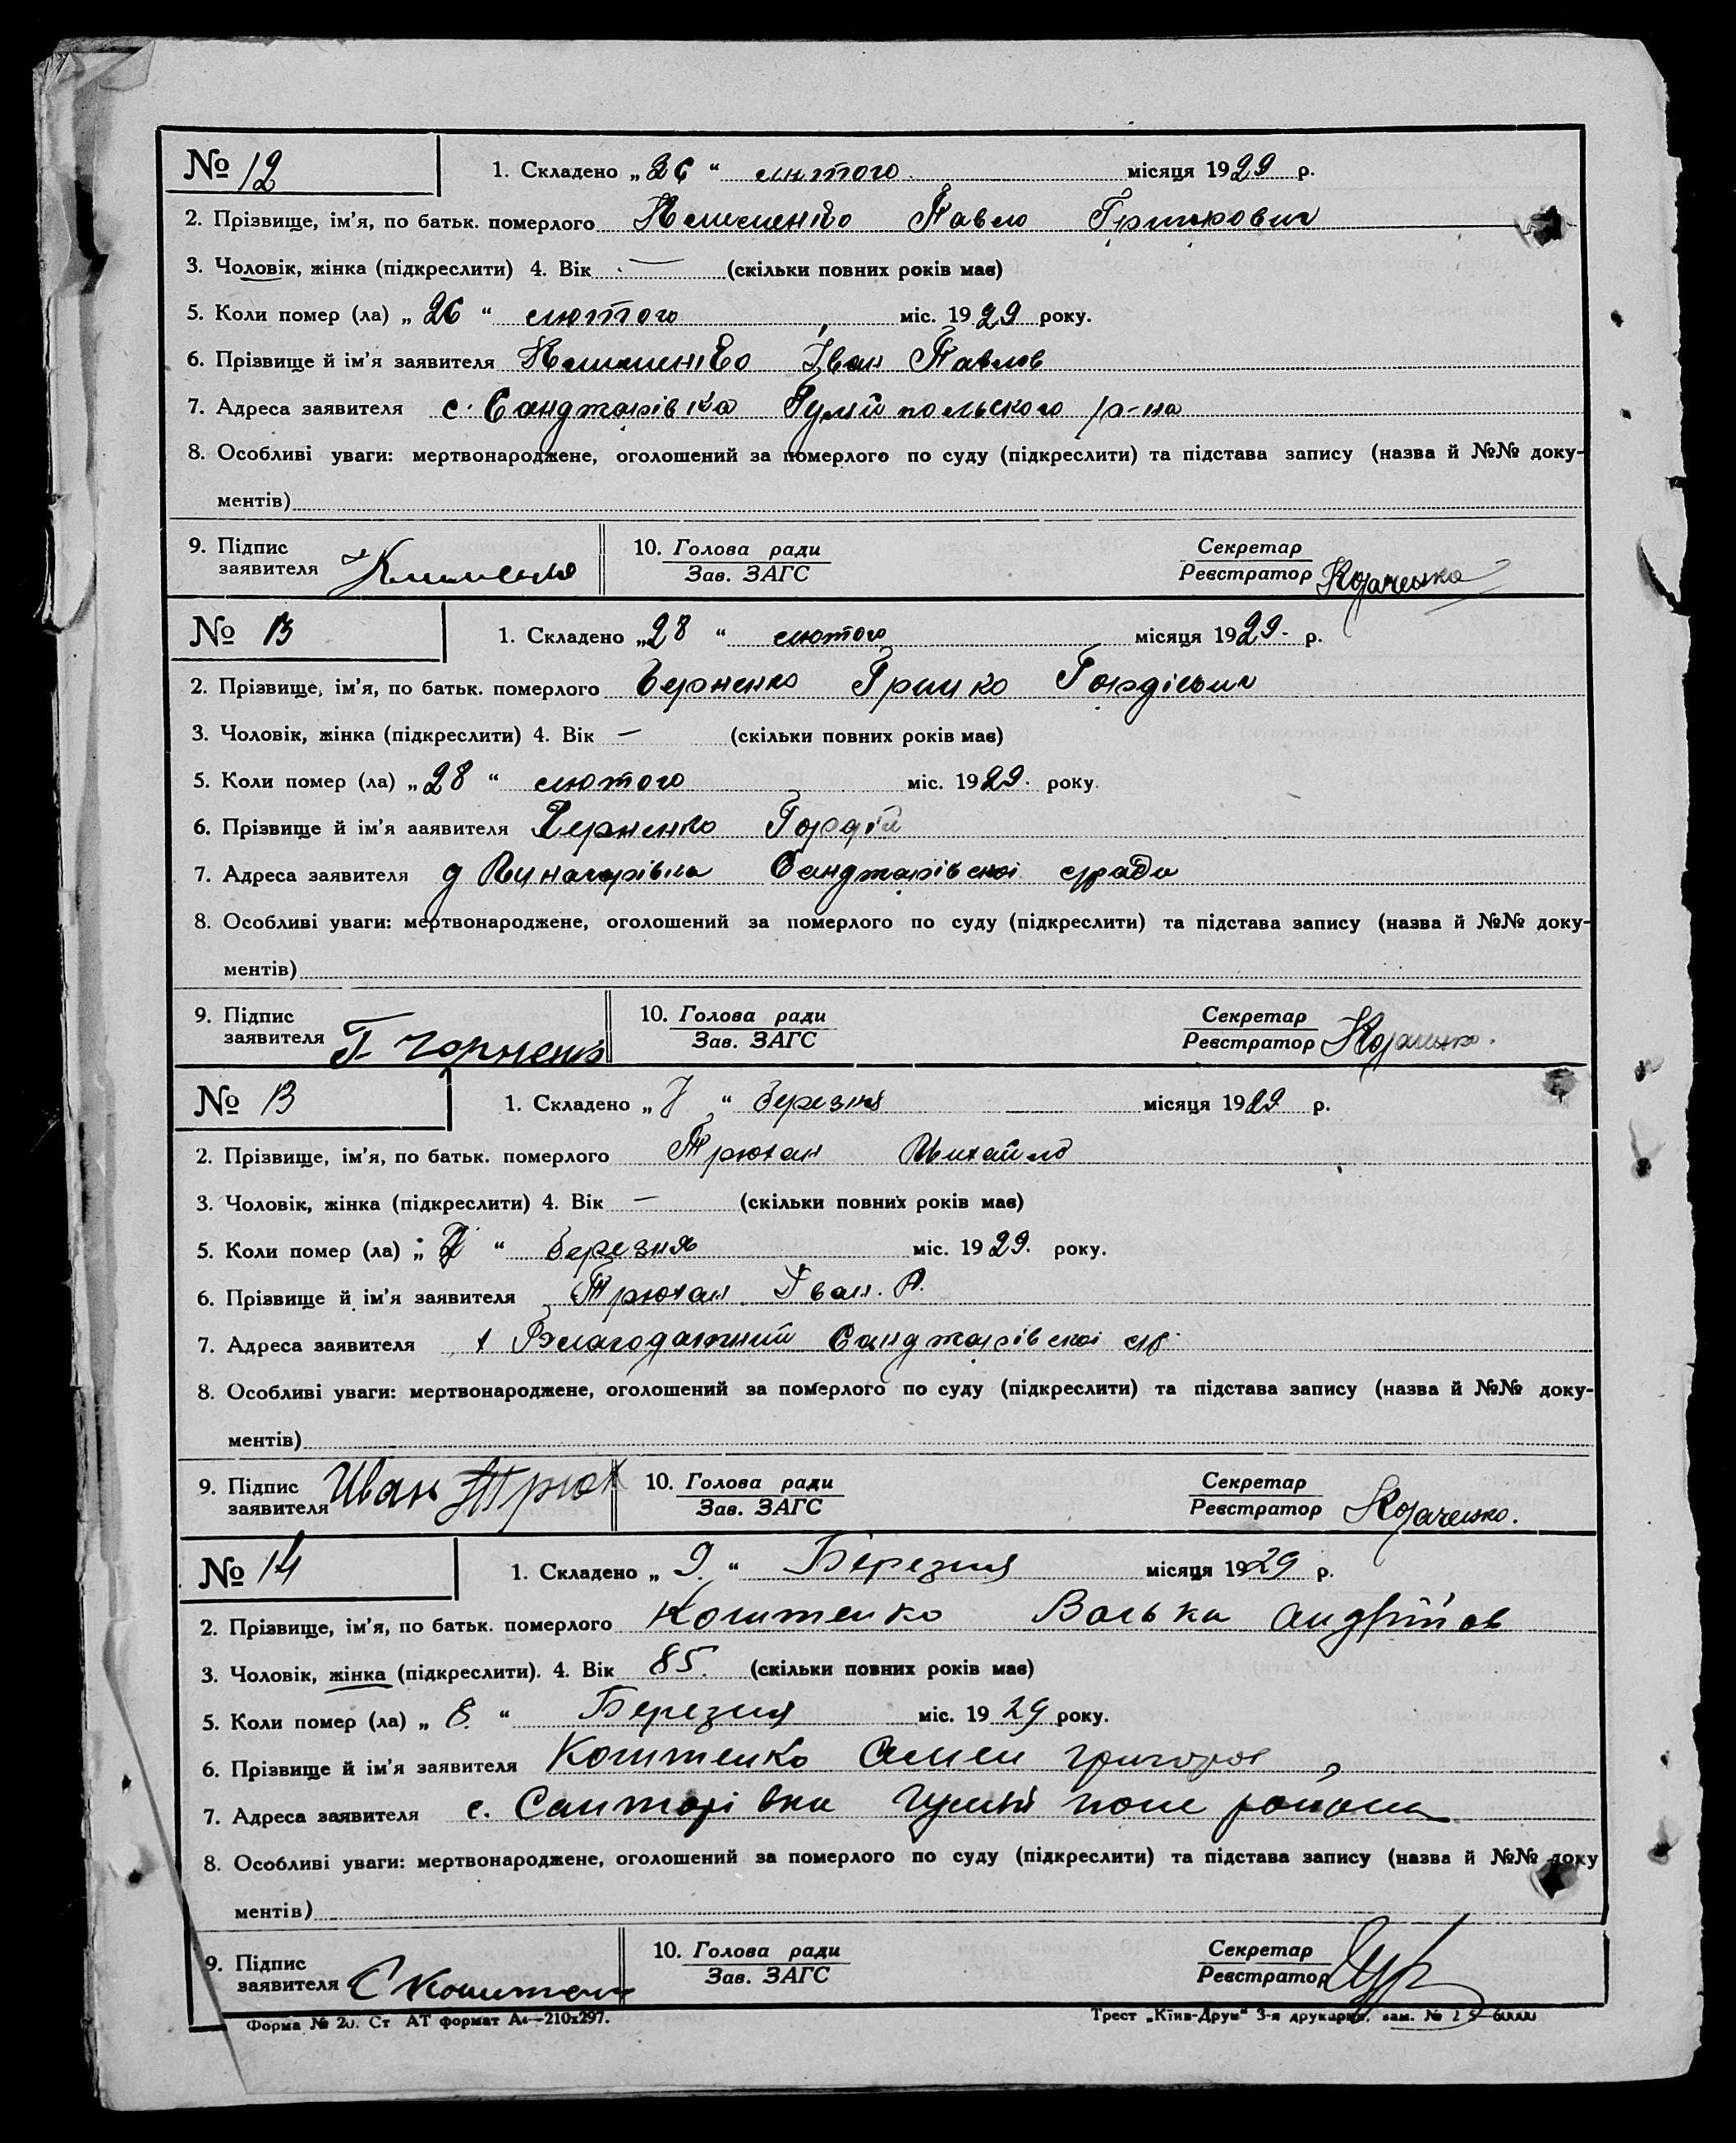 № 12 1. Складено „26“ лютого місяця 1929 р.
2. Прізвище, ім'я, по батьк. померлого Клименко Павло Грицкович
3. Чоловік, жінка (підкреслити) 4. Вік — (скільки повних років має)
5. Коли помер (ла) „26“ лютого міс. 1929 року.
6. Прізвище й ім'я заявителя Клименко Іван Павлов
7. Адреса заявителя с. Санджарівка Гуляйпольского р-на
8. Особливі уваги: мертвонароджене, оголошений за померлого по суду (підкреслити) та підстава запису (назва й №№ доку-
ментів)
9. Підпис заявителя Клименко 10. Голова ради Зав. ЗАГС Секретар Реєстратор Козаченко
№ 13 1. Складено „28“ лютого місяця 1929 р.
2. Прізвище, ім'я, по батьк. померлого Черненко Грицко Гордієвич
3. Чоловік, жінка (підкреслити) 4. Вік — (скільки повних років має)
5. Коли помер (ла) „28“ лютого міс. 1929. року
6. Прізвище й ім'я заявителя Черненко Гордій
7. Адреса заявителя Санджарівскої с/ради
8. Особливі уваги: мертвонароджене, оголошений за померлого по суду (підкреслити) та підстава запису (назва й №№ доку-
ментів)
9. Підпис заявителя Г. Чорненко 10. Голова ради Зав. ЗАГС Секретар Реєстратор Козаченко.
№ 13 1. Складено „7“ березня місяця 1929 р.
2. Прізвище, ім'я, по батьк. померлого Трюхан Михайло
3. Чоловік, жінка (підкреслити) 4. Вік — (скільки повних років має)
5. Коли помер (ла) „7“ березня міс. 1929. року.
6. Прізвище й ім'я заявителя Трюхан Іван. А.
7. Адреса заявителя х Благодатний Санджарівскої с/р.
8. Особливі уваги: мертвонароджене, оголошений за померлого по суду (підкреслити) та підстава запису (назва й №№ доку-
ментів)
9. Підпис заявителя Иван Трюх 10. Голова ради Зав. ЗАГС Секретар Реєстратор Козаченко.
№ 14 1. Складено „9.“ Березня місяця 1929 р.
2. Прізвище, ім'я, по батьк. померлого Коштенко Андрійов
3. Чоловік, жінка (підкреслити). 4. Вік 85. (скільки повних років має)
5. Коли помер (ла) „8.“ Березня міс. 1929 року.
6. Прізвище й ім'я заявителя Коштенко Семен Григоров
7. Адреса заявителя с.
8. Особливі уваги: мертвонароджене, оголошений за померлого по суду (підкреслити) та підстава запису (назва й №№ доку
ментів)
9. Підпис заявителя С Коштен 10. Голова ради Зав. ЗАГС Секретар Реєстратор
Форма № 20. Ст АТ формат А4—210х297. Трест „Київ-Друк“ 3-я друкарня. зам. №